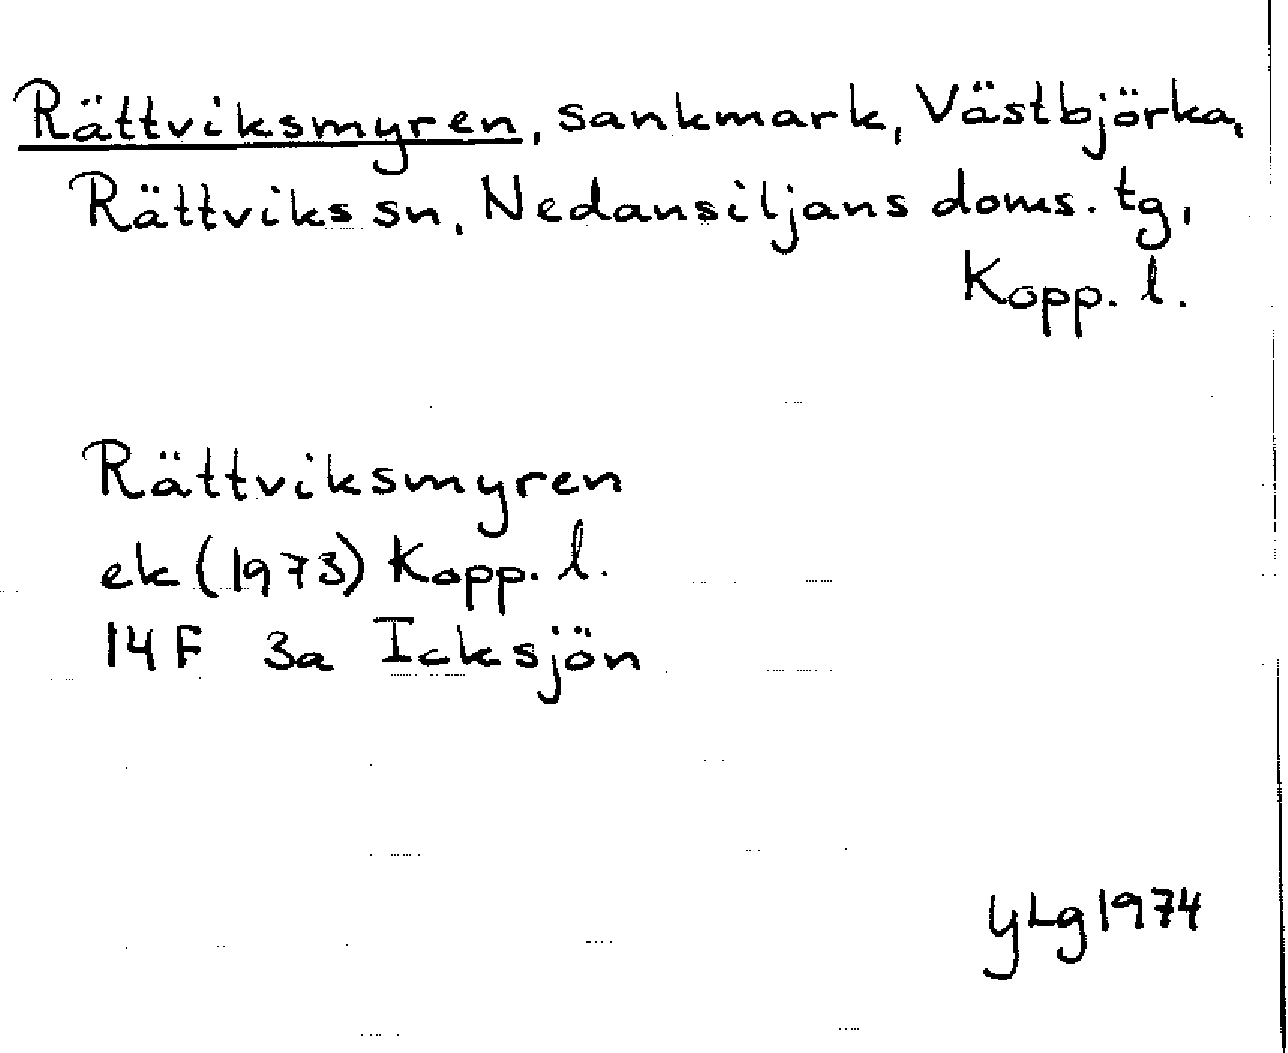 Rättviksmyren, sankmark, Västbjörka,
Rättviks sn, Nedansiljans doms. tg,
Kopp. l.
Rättviksmyren
ek (1973) Kopp. l.
14F 3a Icksjön
YLg 1974